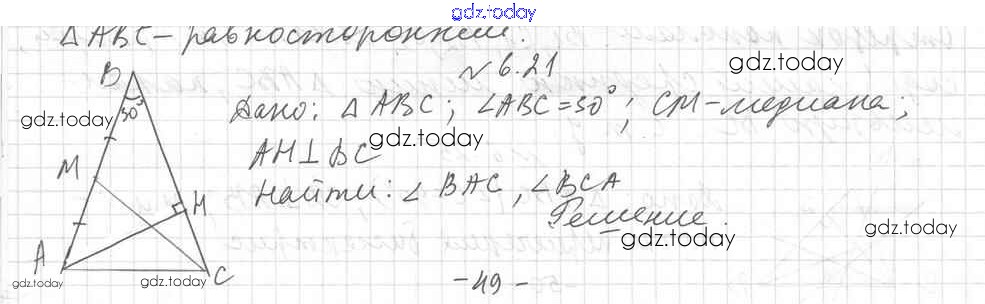 gdz.today
△ABC - равносторонний.
№ 6.21
gdz.today
B
30°
gdz.today
Дано: △ABC; ∠ABC=30°; CM-медиана;
gdz.today
AH⊥BC
M
Найти: ∠BAC, ∠BCA
H
Решение.
gdz.today
gdz.today
A
C
gdz.today
gdz.today
-49-